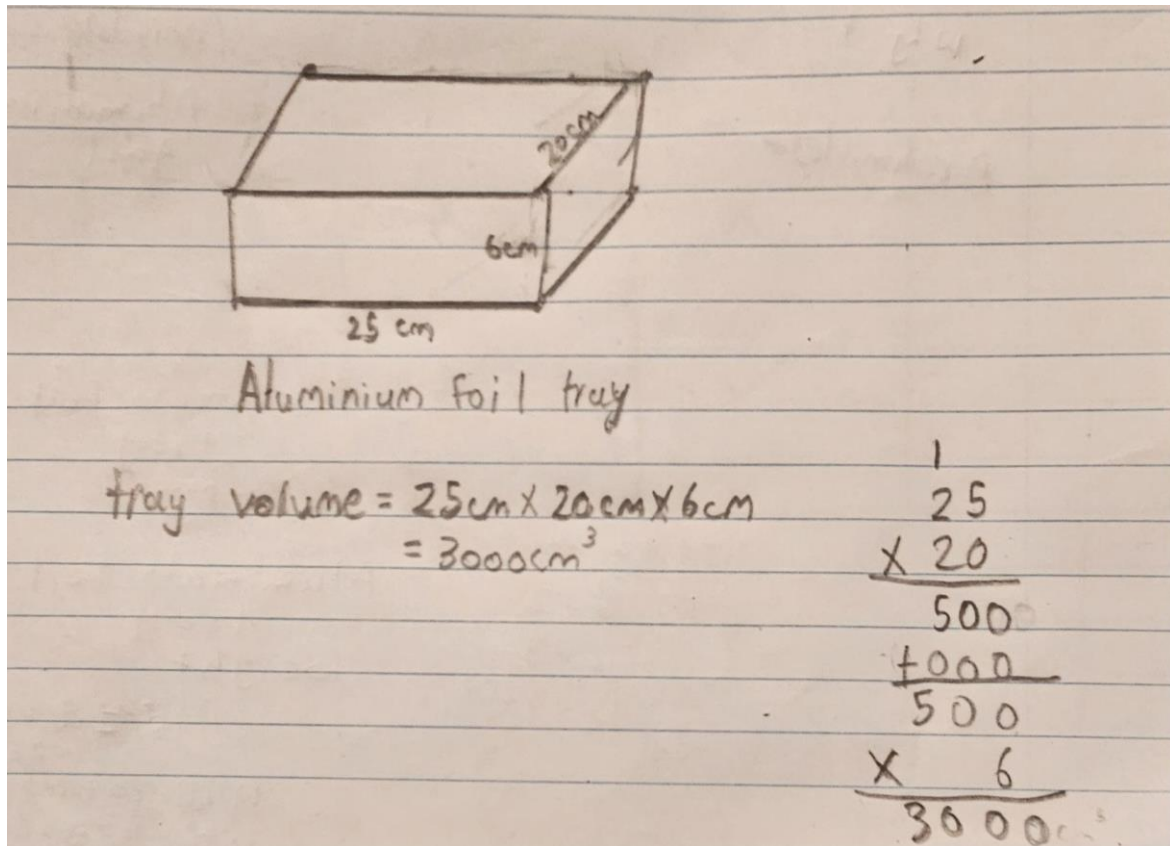 20cm
6cm
25 cm
Aluminium foil tray
tray volume = 25cm X 20cm X 6cm
= 3000cm³
1
25
X 20
500
+000
500
X 6
3000